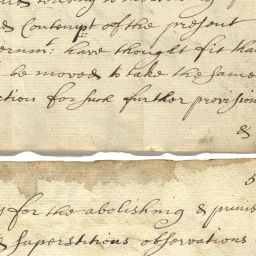 & Contempt of the present
ernmt: have thought fit tha
be moved to take the same
ction for such further provision
&
s for the abolishing & punis
& superstitious observations